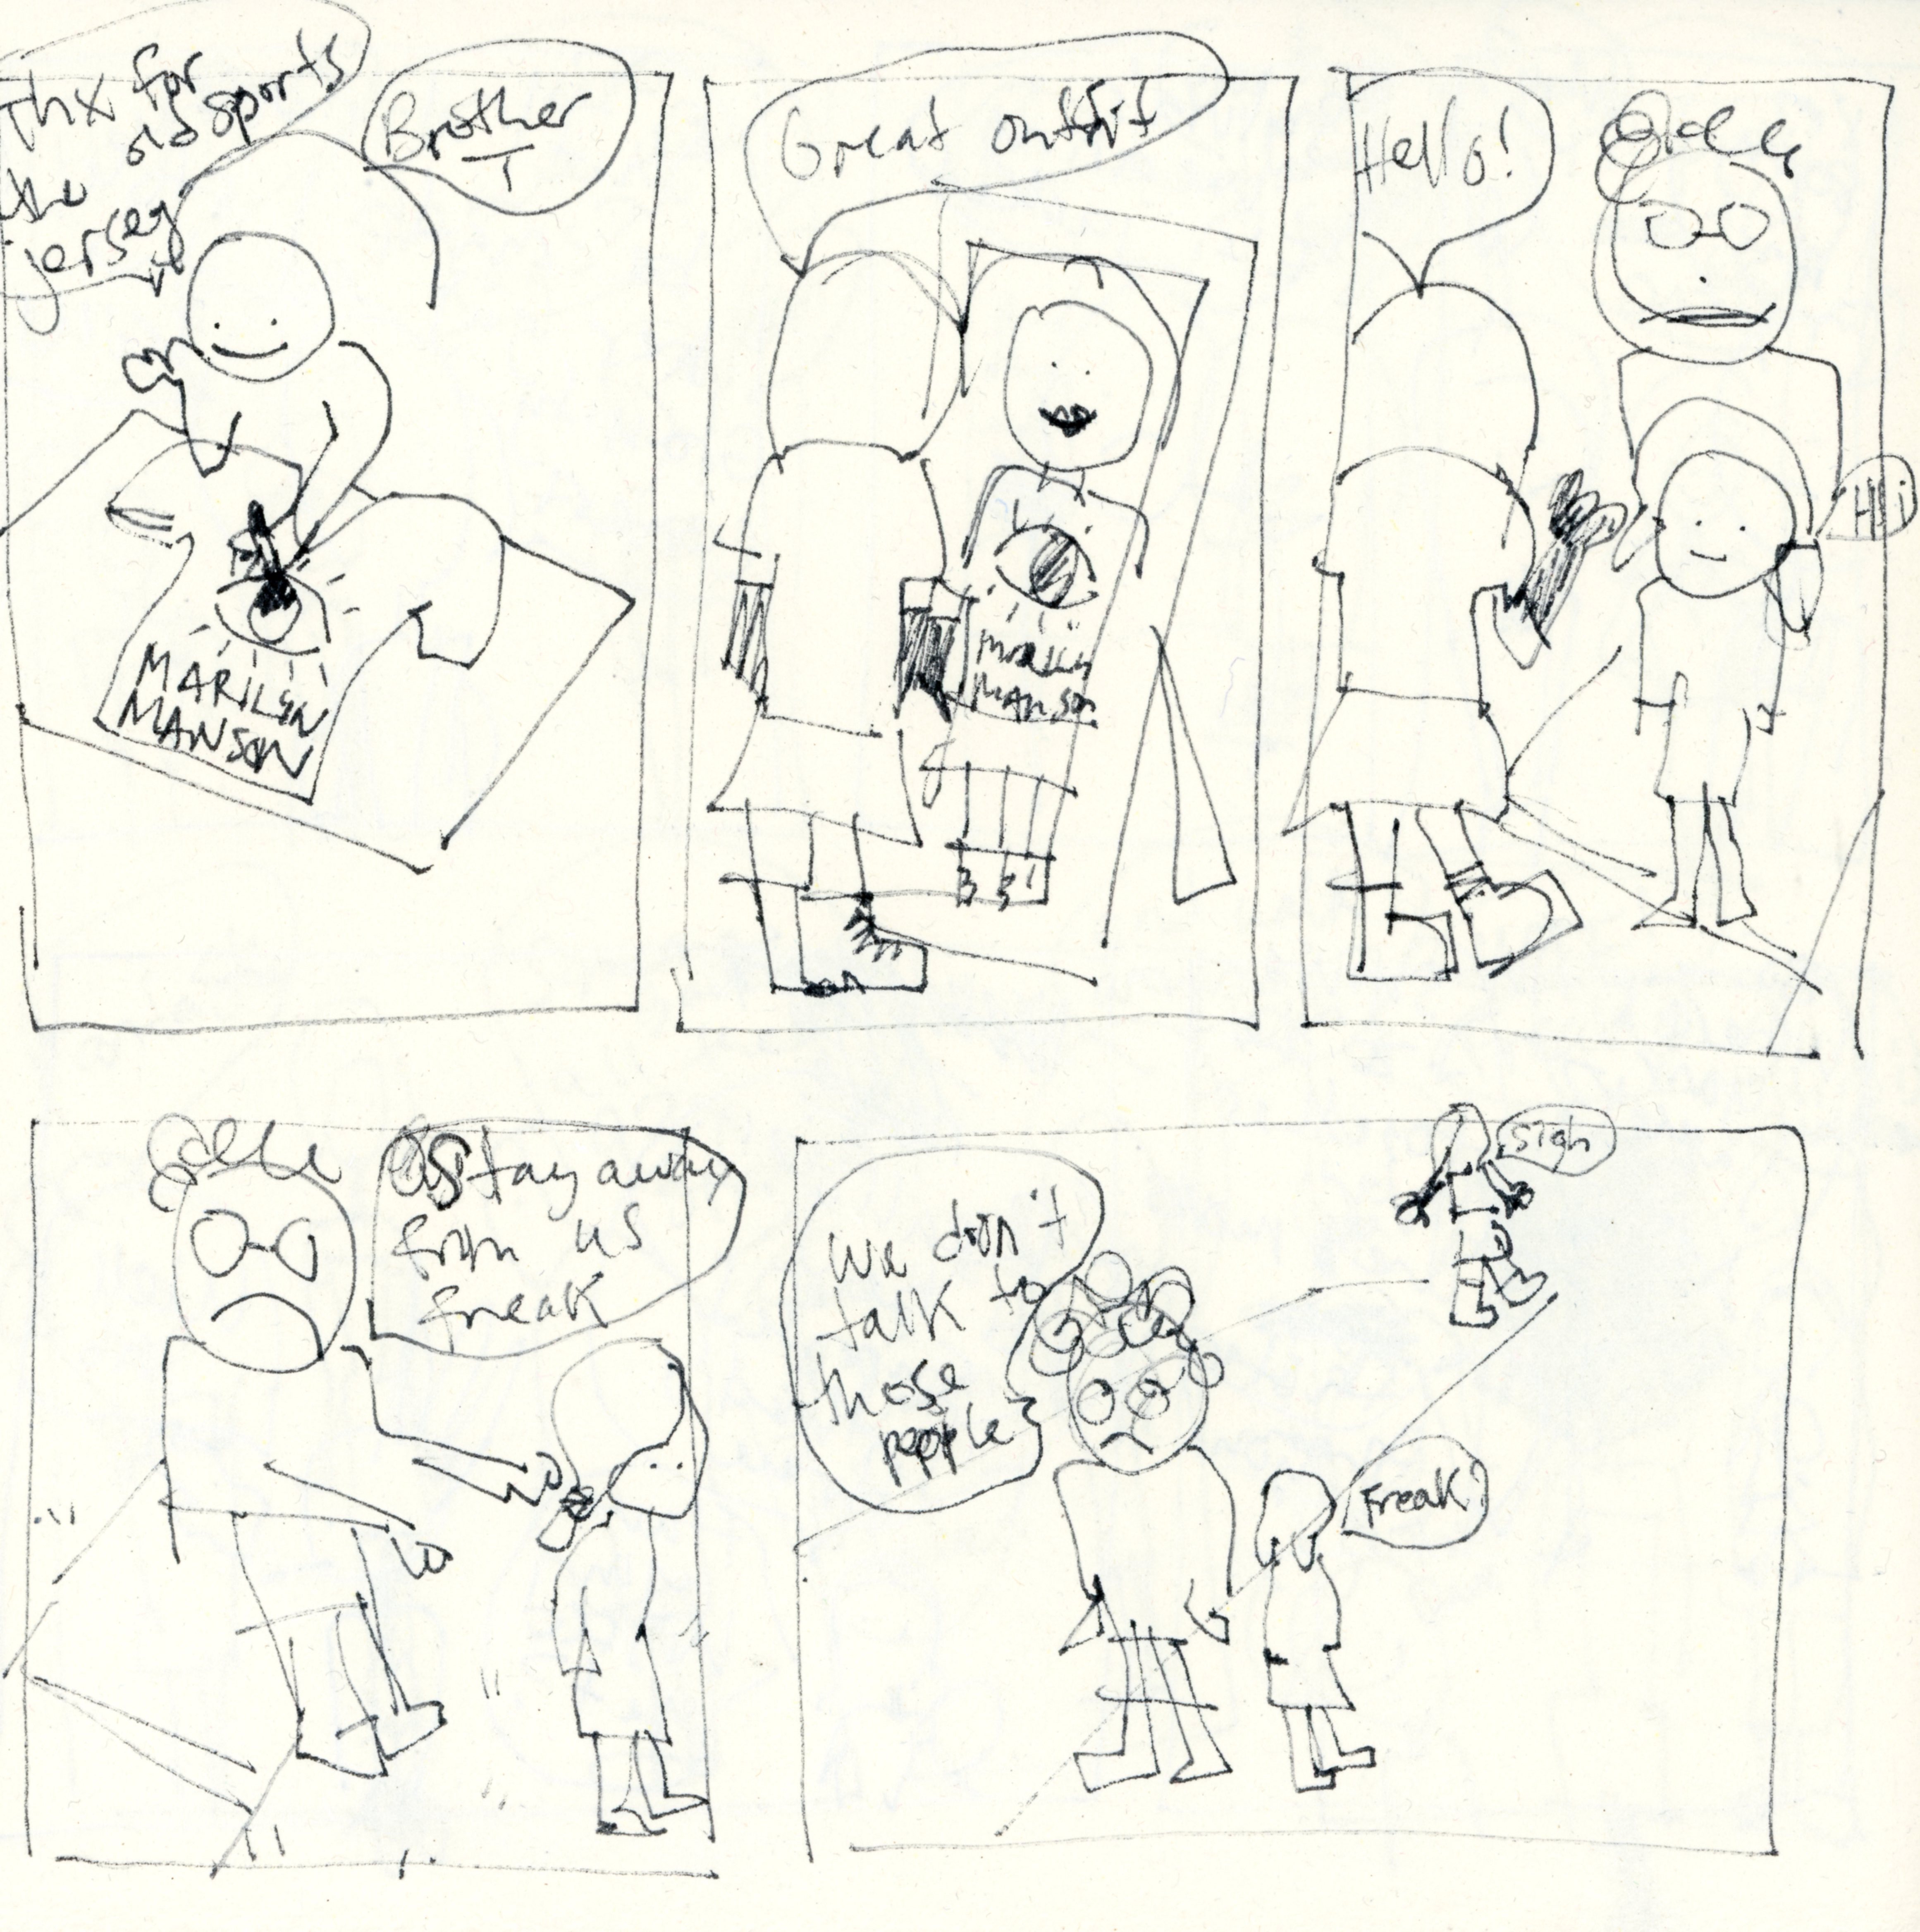 Thx for
old sports
the
jersey
Brother
T
MARILYN
MANSON
Great outfit
MARILYN
MANSON
Hello!
Hi
Stay away
from us
freak
We don't
talk to
those
people
sigh
Freak?